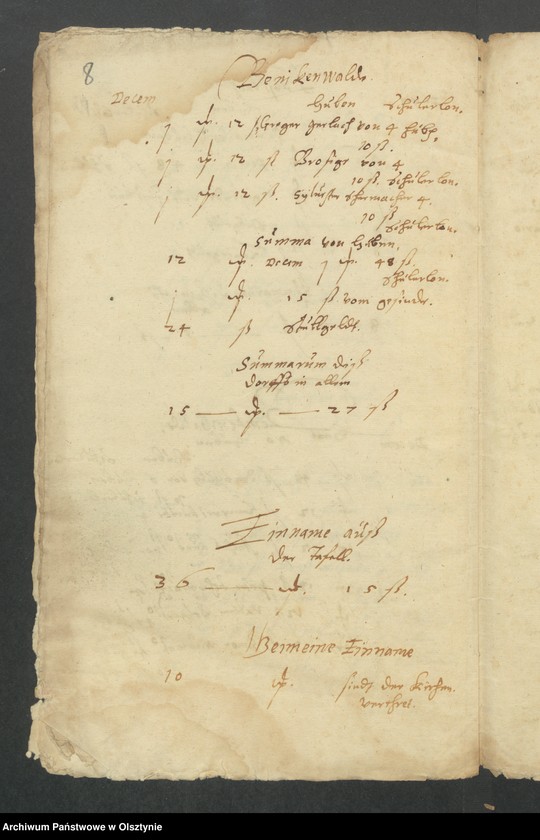 8
Benikenwaldt
Decem Huben Schulerlon.
j 12 ß Greger Gerlach von 4 Hub.
10 ß.
j 12 ß Brosige von 4
10 ß. Schulerlon.
j 12 ß. Sylvester Schumacher 4.
10 ß
Schulerlon.
Summa von Huben.
12 Decem j 48 ß.
Schulerlon.
j 15 ß vom gesinde.
24 ß
Summarum diß
dorffs in allem
15 — — 27 ß
Einname auß
der Tafell.
36 — 15 ß.
Gemeine Einname
10 sindt der Kirchen
verehret.
Archiwum Państwowe w Olsztynie